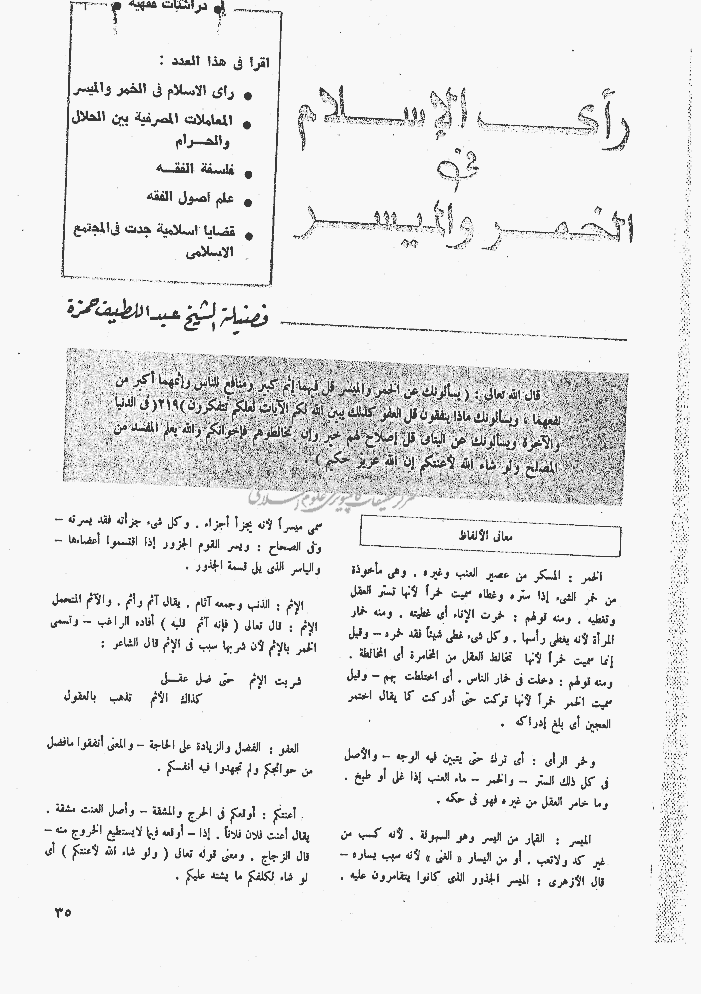 دراسات فقهية
اقرأ فى هذا العدد :
● رأى الاسلام فى الخمر والميسر
● المعاملات المصرفية بين الحلال
والحــرام
● فلسفة الفقــه
● علم أصول الفقه
● قضايا اسلامية جدت فى المجتمع
الاسلامى
رأى الإسلام
فى
الخمر والميسر
فضيلة الشيخ عبد اللطيف حمزة
قال الله تعالى : ( يسألونك عن الخمر والميسر قل فيهما إثم كبير ومنافع للناس وإثمهما أكبر من
نفعهما ، ويسألونك ماذا ينفقون قل العفو كذلك يبين الله لكم الآيات لعلكم تتفكرون )٢١٩( فى الدنيا
والآخرة ويسألونك عن اليتامى قل إصلاح لهم خير وإن تخالطوهم فإخوانكم والله يعلم المفسد من
المصلح ولو شاء الله لأعنتكم إن الله عزيز حكيم )
معانى الألفاظ
الخمر : المسكر من عصير العنب وغيره . وهى مأخوذة
من خمر الشىء إذا ستره وغطاه سميت خمراً لأنها تستر العقل
وتغطيه . ومنه قولهم : خمرت الإناء أى غطيته . ومنه خمار
المرأة لأنه يغطى رأسها . وكل شىء غطى شيئاً فقد خمره – وقيل
إنما سميت خمراً لأنها تخالط العقل من المخامرة أى المخالطة .
ومنه قولهم : دخلت فى خمار الناس . أى اختلطت بهم – وقيل
سميت الخمر خمراً لأنها تركت حتى أدركت كما يقال اختمر
العجين أى بلغ إدراكه .
وخمر الرأى : أى ترك حتى يتبين فيه الوجه – والأصل
فى كل ذلك الستر – والخمر – ماء العنب إذا غلى أو طبخ .
وما خامر العقل من غيره فهو فى حكمه .
الميسر : القمار من اليسر وهو السهولة . لأنه كسب من
غير كد ولاتعب . أو من اليسار « الغنى » لأنه سبب يساره –
قال الأزهرى : الميسر الجذور الذى كانوا يتقامرون عليه .
سمى ميسراً لأنه يجزأ أجزاء . وكل شىء جزأته فقد يسرته –
وفى الصحاح : ويسر القوم الجزور إذا اقتسموا أعضاءها –
والياسر الذى يلى قسمة الجذور .
الإثم : الذنب وجمعه آثام . يقال آثم وأثم . والآثم المتحمل
الإثم : قال تعالى ( فإنه آثم قلبه ) أفاده الراغب – وتسمى
الخمر بالإثم لأن شربها سبب فى الإثم قال الشاعر :
شربت الإثم حتى ضل عقــلى
كذاك الآثم تذهب بالعقول
العفو : الفضل والزيادة على الحاجة – والمعنى أنفقوا مافضل
من حوائجكم ولم تجهدوا فيه أنفسكم .
أعنتكم : أوقعكم فى الحرج والمشقة – وأصل العنت مشقة .
يقال أعنت فلان فلاناً . إذا – أوقعه فيما لايستطيع الخروج منه –
قال الزجاج . ومعنى قوله تعالى ( ولو شاء الله لأعنتكم ) أى
لو شاء لكلفكم ما يشتد عليكم .
٣٥